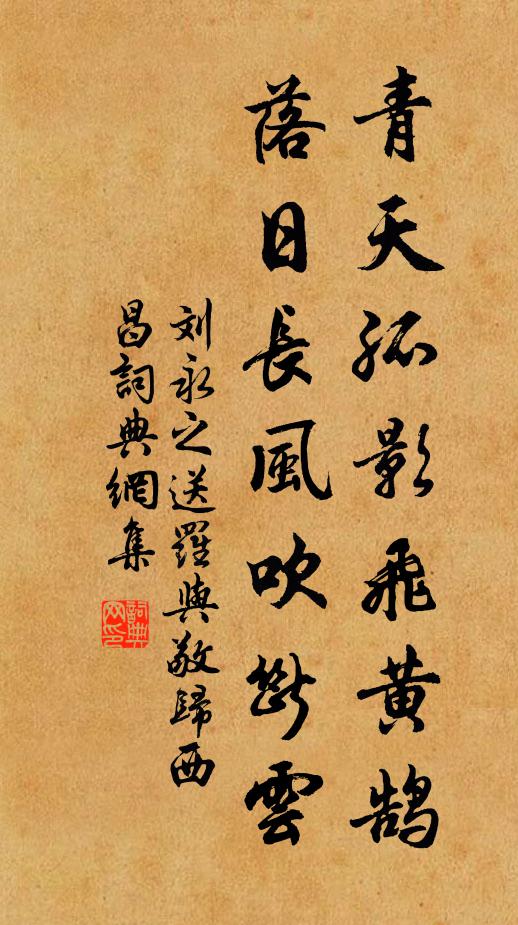 青天孤影飛黄鹄
落日長風吹斷雲
刘永之送羅與敬歸西
昌詞典網集
詞典網印